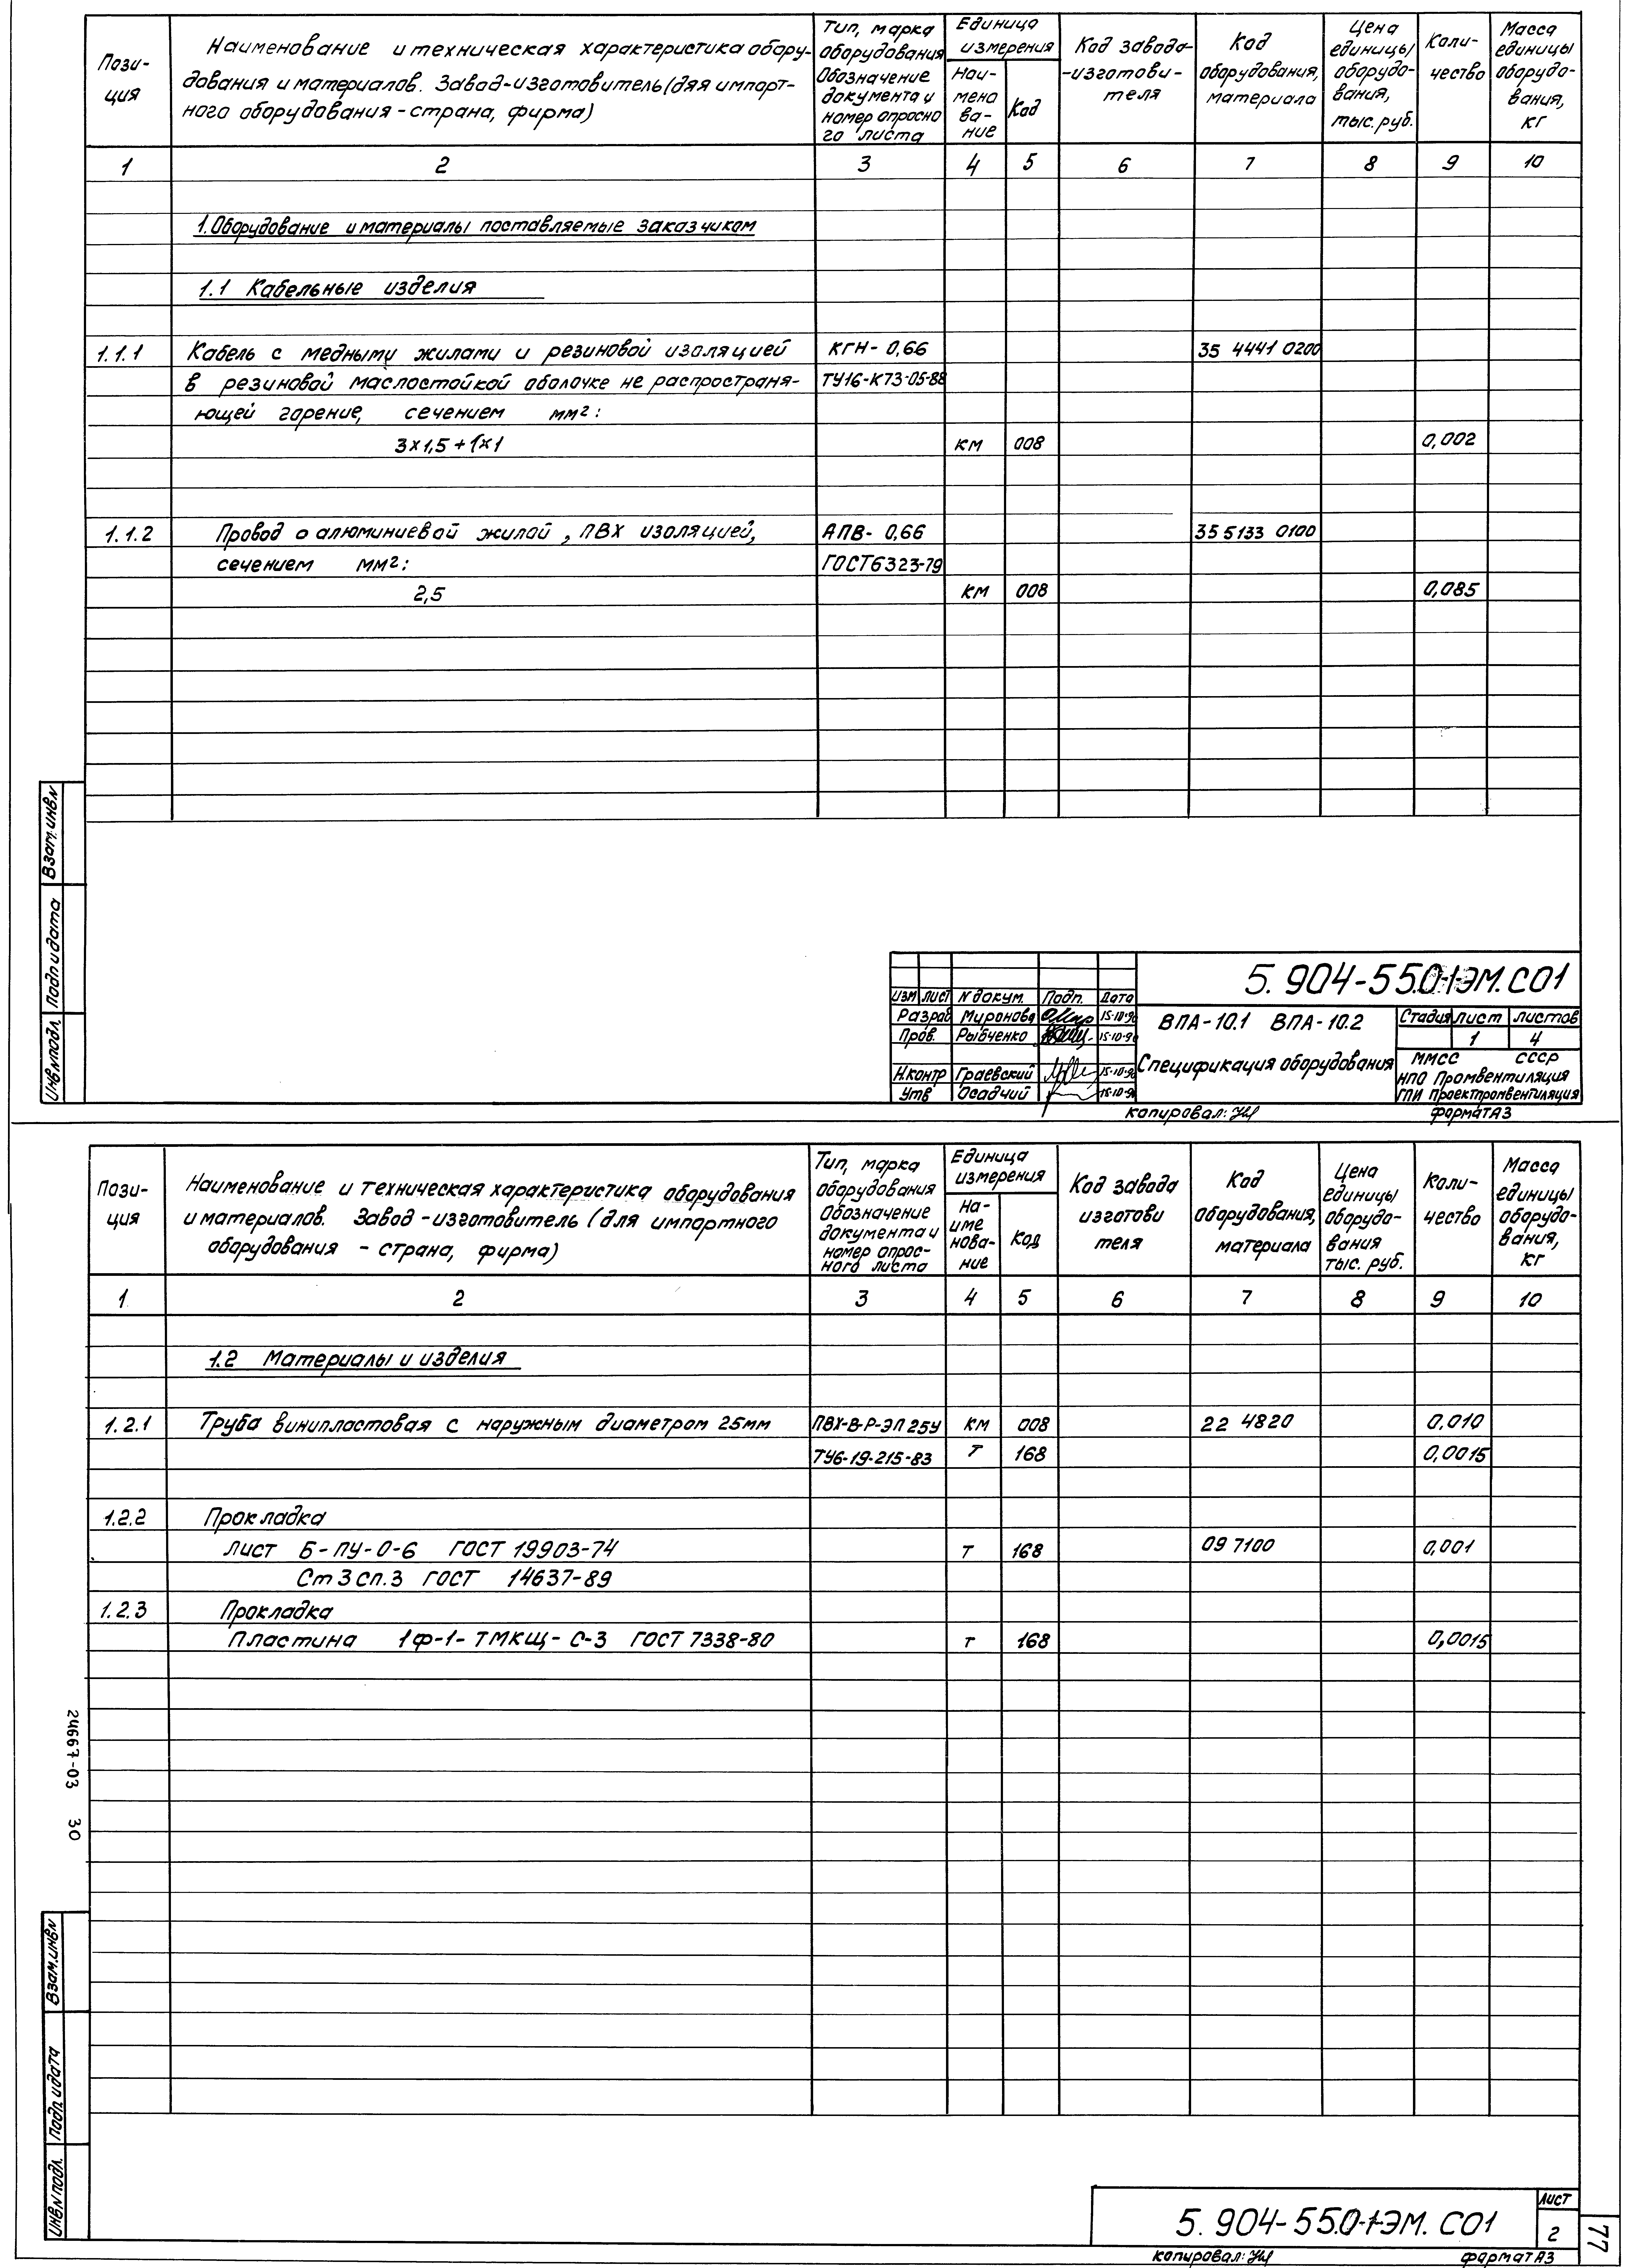 Пози-
ция
Наименование и техническая характеристика обору-
дования и материалов. Завод-изготовитель (для импорт-
ного оборудования - страна, фирма)
Тип, марка
оборудования
Обозначение
документа и
номер опросно
го листа
Единица
измерения
Наи-
мено
ва-
ние
Код
Код завода-
-изготови-
теля
Код
оборудования,
материала
Цена
единицы
оборудо-
вания,
тыс. руб.
Коли-
чество
Масса
единицы
оборудо-
вания,
кг
1 2 3 4 5 6 7 8 9 10
1. Оборудование и материалы поставляемые заказчиком
1.1 Кабельные изделия
1.1.1 Кабель с медныму жилами и резиновой изоляцией КГН- 0,66 35 4441 0200
в резиновой маслостойкой оболочке не распространя- ТУ16-К73-05-88
ющей горение, сечением мм²:
3×1,5 + 1×1 км 008 0,002
1.1.2 Провод о алюминиевой жилой, ПВХ изоляцией, АПВ- 0,66 35 5133 0100
сечением мм²: ГОСТ6323-79
2,5 км 008 0,085
Взам.инв.N
Подп и дата
Инв.N подл.
5. 904-55.0-1-ЭМ.СО1
Изм Лист N докум. Подп. Дата
Разраб Миронова 15-10-90
Пров. Рыбченко 15-10-90
Н.контр Граевский 15-10-90
Утв Осадчий 15-10-90
ВПА-10.1 ВПА-10.2
Спецификация оборудования
Стадия Лист Листов
1 4
ММСС СССР
НПО Промвентиляция
ГПИ Проектпромвентиляция
копировал: формат А3
Пози-
ция
Наименование и техническая характеристика оборудования
и материалов. Завод-изготовитель (для импортного
оборудования - страна, фирма)
Тип, марка
оборудования
Обозначение
документа и
номер опрос-
ного листа
Единица
измерения
На-
име
нова-
ние
Код
Код завода
изготови
теля
Код
оборудования,
материала
Цена
единицы
оборудо-
вания
тыс. руб.
Коли-
чество
Масса
единицы
оборудо-
вания,
кг
1 2 3 4 5 6 7 8 9 10
1.2 Материалы и изделия
1.2.1 Труба винипластовая с наружным диаметром 25мм ПВХ-В-Р-ЭП 25У км 008 22 4820 0,010
ТУ6-19-215-83 т 168 0,0015
1.2.2 Прокладка
Лист Б-ПУ-0-6 ГОСТ 19903-74 т 168 09 7100 0,001
Ст3сп.3 ГОСТ 14637-89
1.2.3 Прокладка
Пластина 1ф-1-ТМКЩ-С-3 ГОСТ 7338-80 т 168 0,0015
24667-03 30
Взам.инв.N
Подп. и дата
Инв.N подл.
5. 904-55.0-1-ЭМ. СО1
Лист
2
копировал: формат А3
77